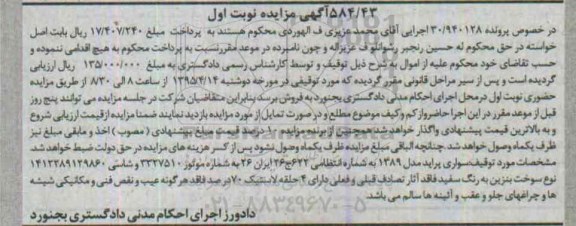 ۵۸۴/۴۳آگهی مزایده نوبت اول
در خصوص پرونده ۳۰/۹۴۰۱۲۸اجرایی آقای محمد عزیزی ف الهوردی محکوم هستند به پرداخت مبلغ ۱۷/۴۰۷/۲۴۰ ریال بابت اصل
خواسته در حق محکوم له حسین رنجبر رسوانلو ف عزیزاله و چون نامبرده در موعد مقررنسبت به پرداخت محکوم به هیچ اقدامی ننموده و
حسب تقاضای خود محکوم علیه از اموال به شرح ذیل توقیف و توسط کارشناس رسمی دادگستری به مبلغ ۱۳۵/۰۰۰/۰۰۰ ریال ارزیابی
گردیده است و پس از سیر مراحل قانونی مقرر گردیده که مورد توقیفی در مورخه دوشنبه ۱۳۹۵/۴/۱۴ از ساعت ۸ الی ۸/۳۰ از طریق مزایده
حضوری نوبت اول درمحل اجرای احکام مدنی دادگستری بجنورد به فروش برسد بنابراین متقاضیان شرکت در جلسه مزایده می توانند پنج روز
قبل از موعد مقرر در این اجرا حاضرواز کم وکیف موضوع مطلع و در صورت تمایل از مورد مزایده بازدید نمایند ضمنا مزایده ازقیمت ارزیابی شروع
و به بالاترین قیمت پیشنهادی واگذار خواهد شد همچنین از برنده مزایده ۱۰ درصد قیمت مبلغ پیشنهادی ( مصوب ) اخذ و مابقی مبلغ نیز
ظرف یکماه وصول خواهد شد. چنانچه الباقی مبلغ مزایده ظرف یکماه وصول نشود پس از کسر هزینه های مزایده در حق دولت ضبط خواهد شد.
مشخصات مورد توقیف:سواری پراید مدل ۱۳۸۹ به شماره انتظامی ۶۲۲ج۲۶ ایران ۲۶ به شماره موتوژ ۳۳۲۷۵۱۰ وشاسی ۱۴۱۲۲۸۹۱۲۹۸۶۰
نوع سوخت بنزین به رنگ سفید فاقد آثار تصادف قبلی و فعلی دارای ۴ حلقه لاستیک ۷۰درصد فاقد هر گونه عیب و نقص فنی و مکانیکی شیشه
ها و چراغهای جلو و عقب و آئینه ها سالم می باشد.
دادورز اجرای احکام مدنی دادگستری بجنورد
۰۲۱-۸۸۳۴۹۶۷۰-۵